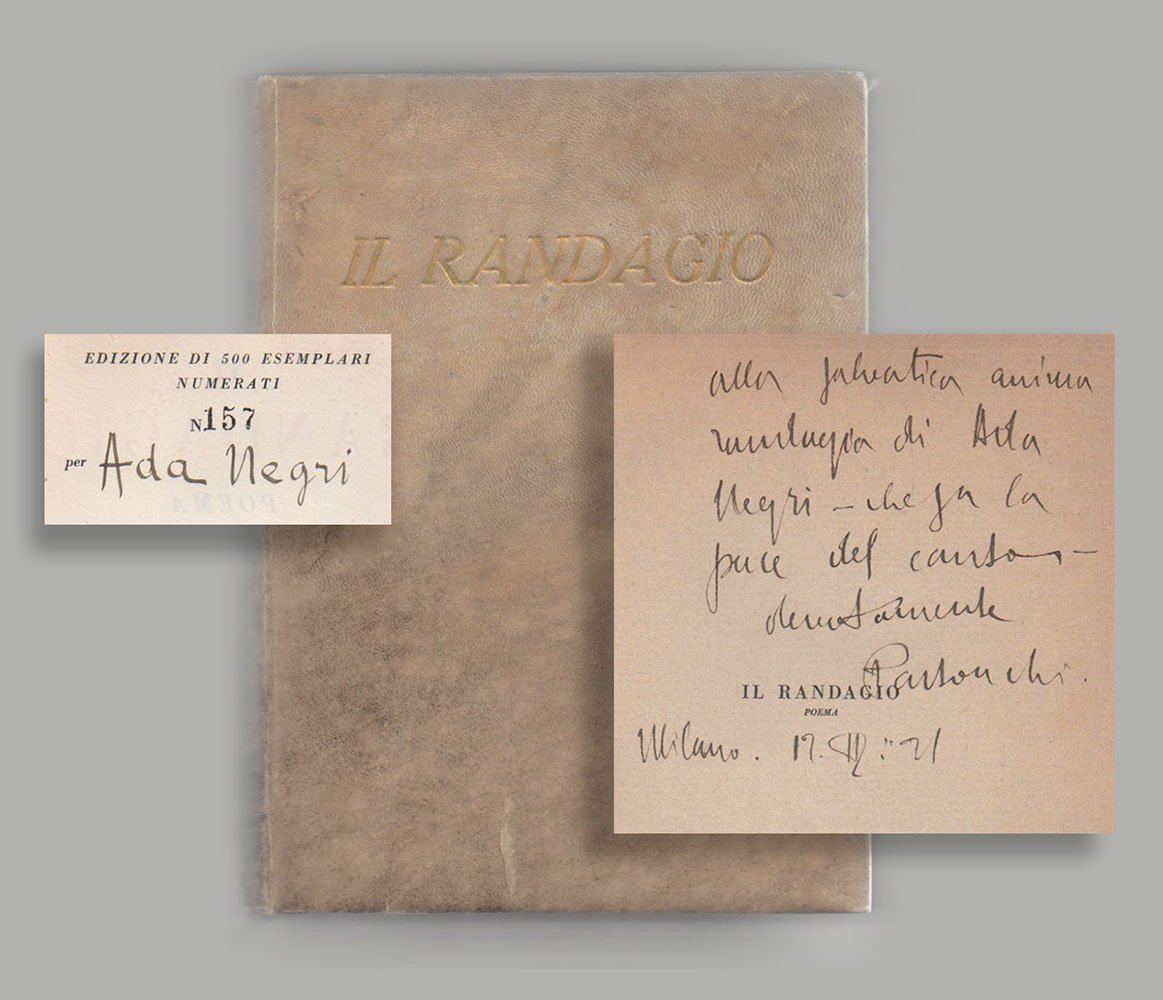 IL RANDAGIO
EDIZIONE DI 500 ESEMPLARI
NUMERATI
N. 157
per Ada Negri
alla anima
randagia di Ada
Negri – che la
pace del canto –
devotamente
Pastonchi.
IL RANDAGIO
POEMA
Milano. 21